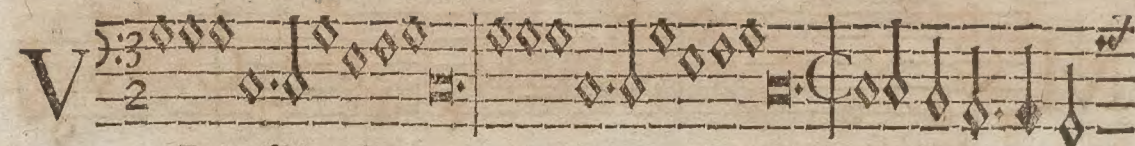 V 3
2